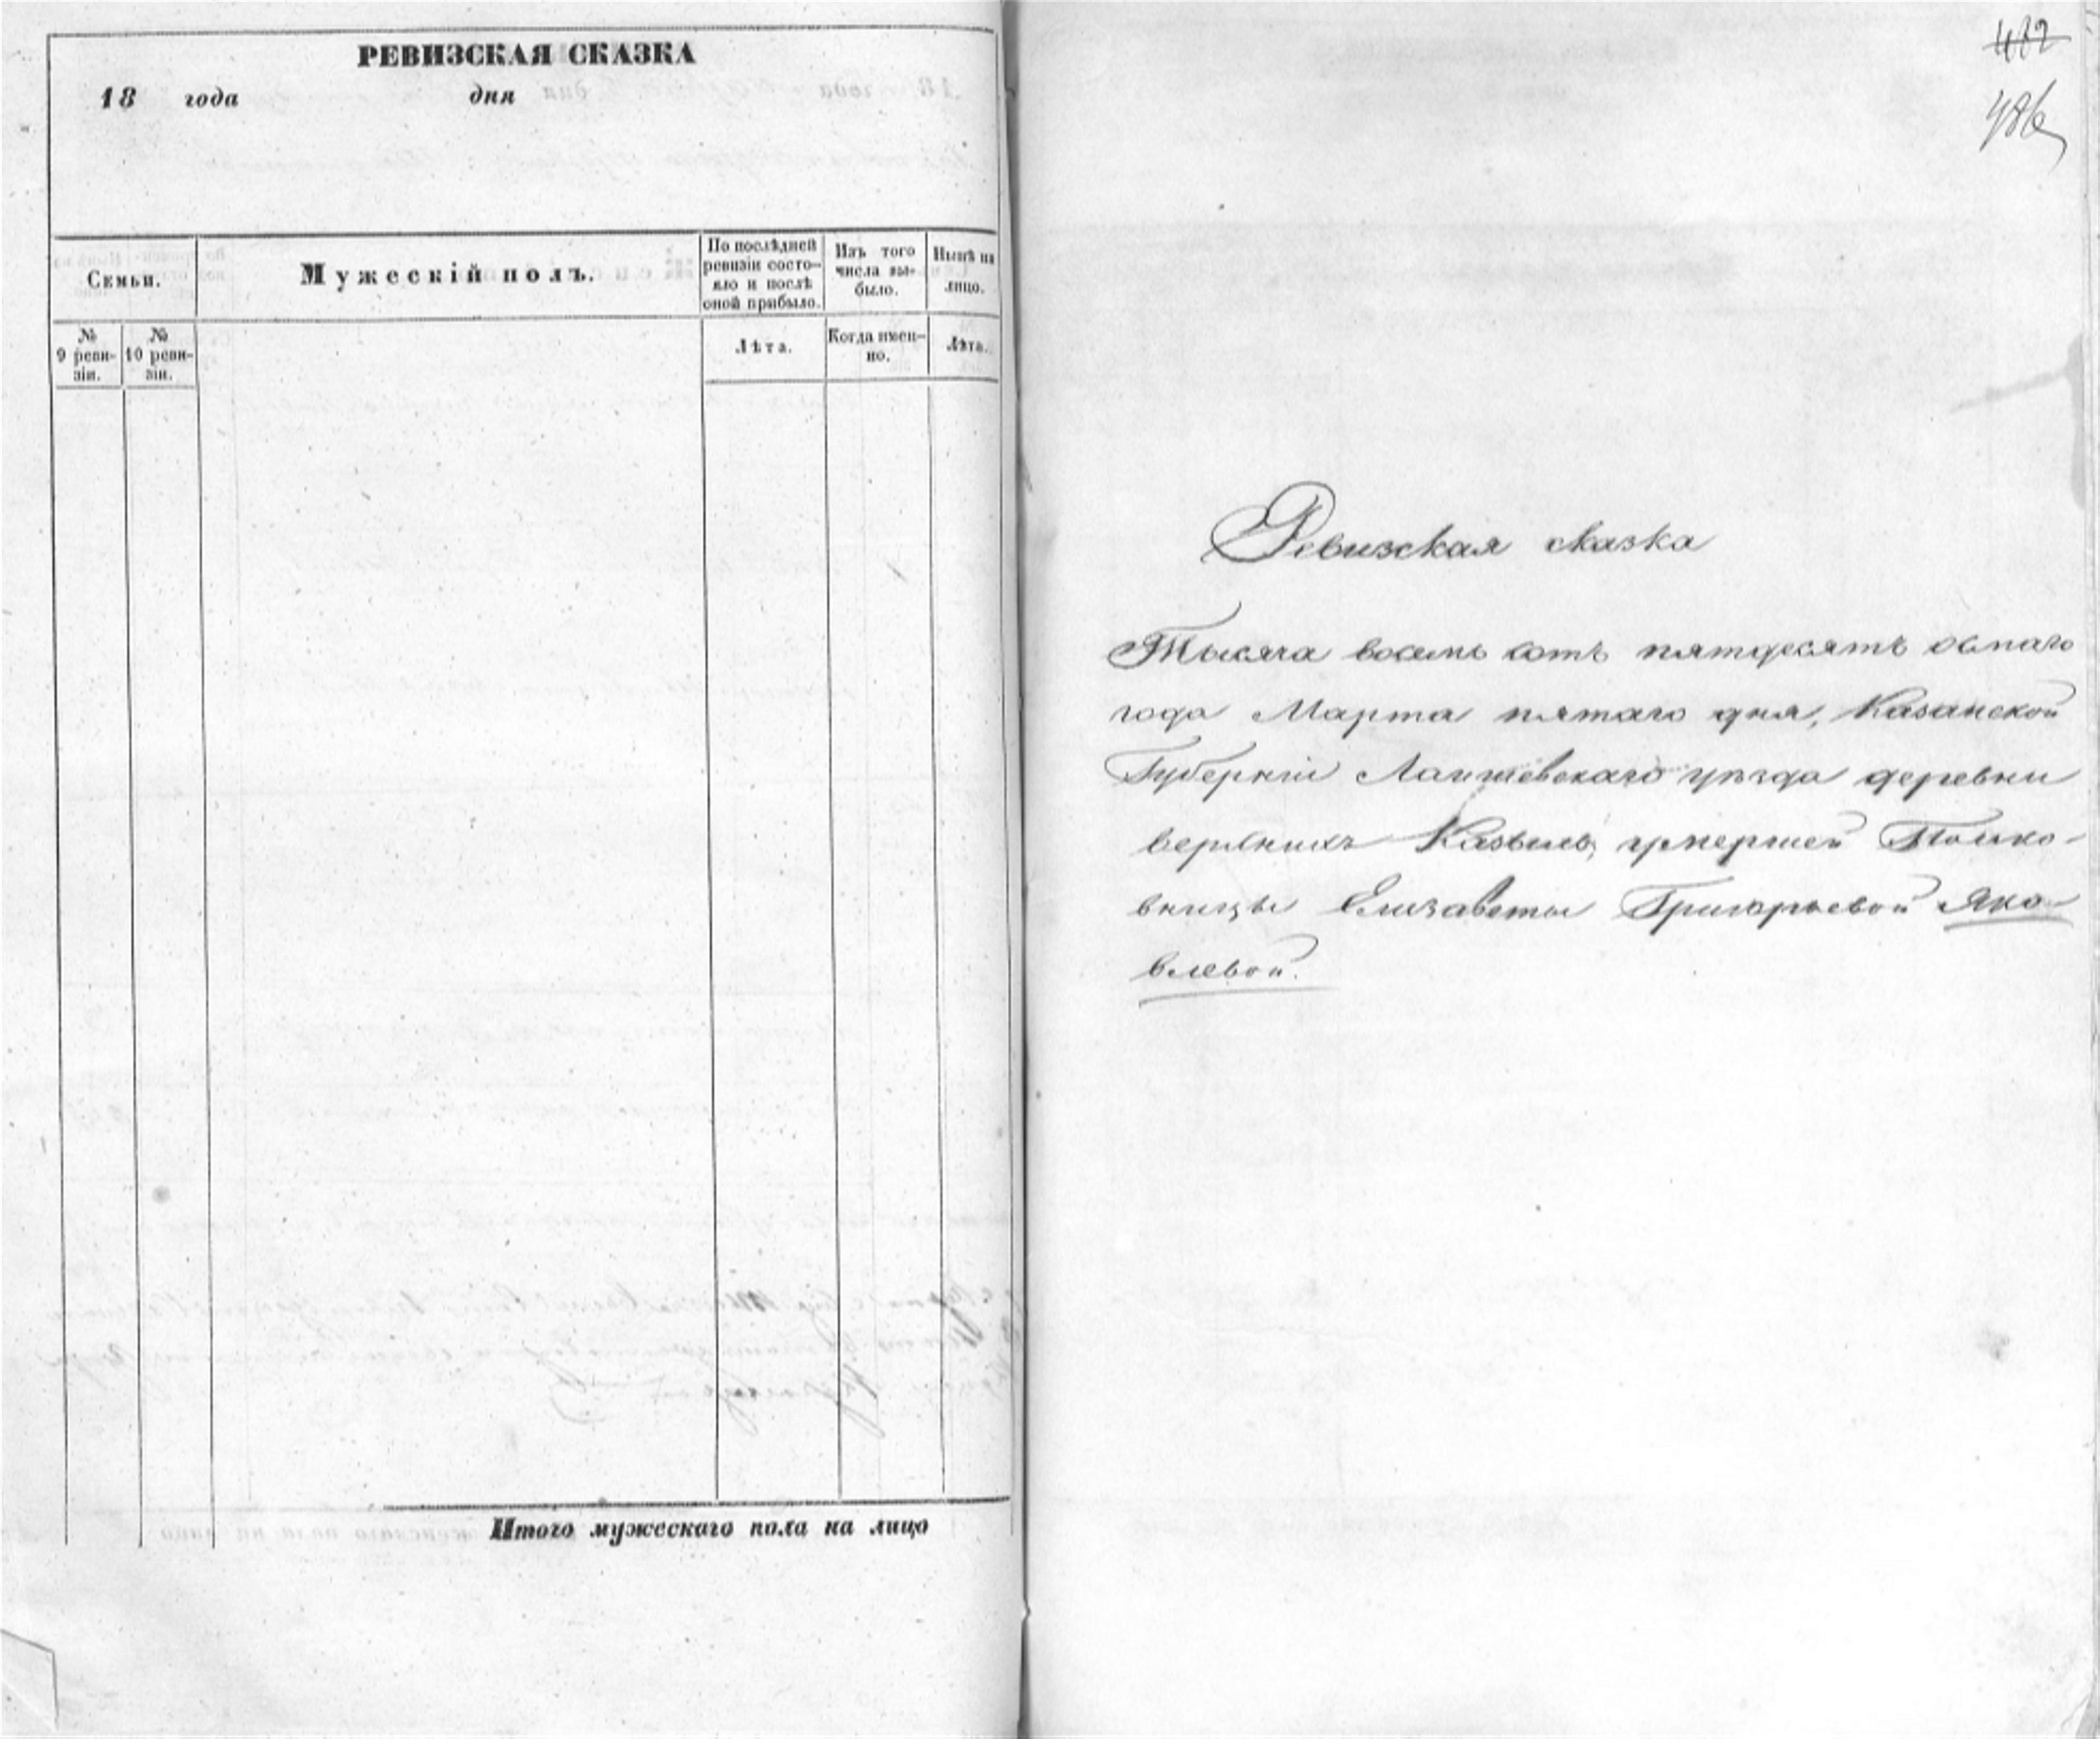 РЕВИЗСКАЯ СКАЗКА
18 года дня
Семьи.
Мужескій полъ.
По послѣдней ревизіи состо-
яло и послѣ
оной прибыло.
Изъ того
числа вы-
было.
Нынѣ на
лицо.
№
9 реви-
зіи.
№
10 реви-
зіи.
Лѣта.
Когда имен-
но.
Лѣта.
Итого мужескаго пола на лицо
482
486
Ревизская сказка
Тысяча восемь сотъ пятдесятъ осмаго
года Марта пятаго дня, Казанской
Губерніи Лаишевскаго уѣзда деревни
верхнихъ Казыль, умершей Полко-
вницы Елизаветы Григорьевой Яко-
влевой.